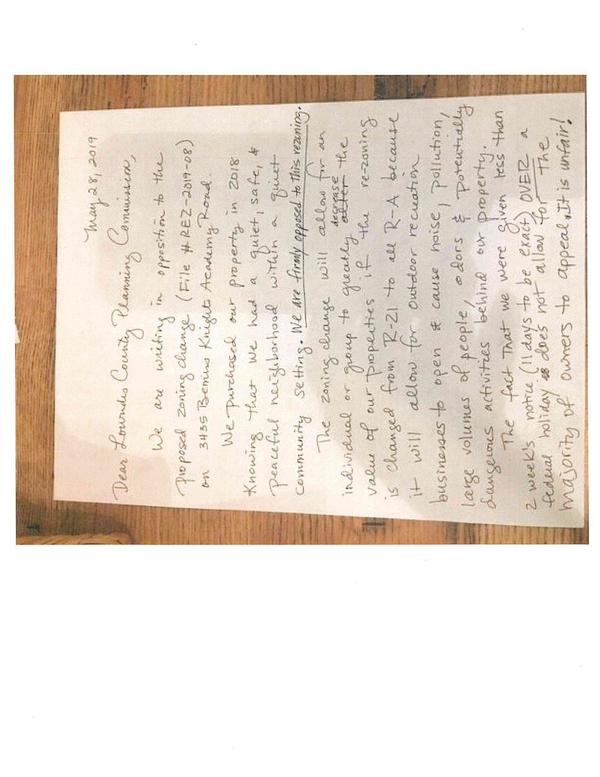 May 28, 2019
Dear Lowndes County Planning Commission,
We are writing in opposition to the
proposed zoning change (File #REZ-2019-08)
on 3435 Bemiss Knights Academy Road.
We purchased our property in 2018
knowing that we had a quiet, safe, &
peaceful neighborhood within a quiet
community setting. We are firmly opposed to this rezoning.
The zoning change will allow for an
individual or group to greatly decrease alter the
value of our properties if the re-zoning
is changed from R-21 to all R-A because
it will allow for outdoor recreation
businesses to open & cause noise, pollution,
large volumes of people, odors & potentially
dangerous activities behind our property.
The fact that we were given less than
2 week's notice (11 days to be exact) OVER a
federal holiday does not allow for the
majority of owners to appeal. It is unfair!